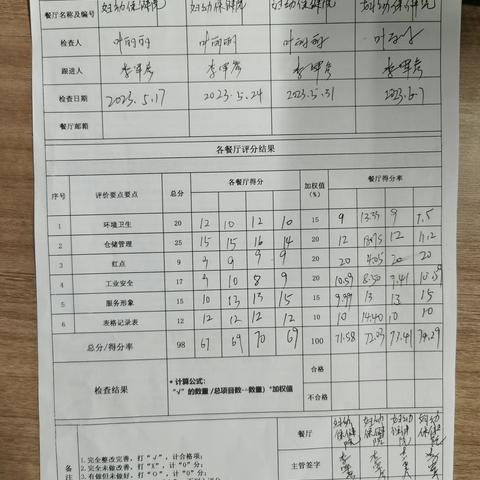 餐厅名称及编号 妇幼保健院 妇幼保健院 妇幼保健院 妇幼保健院
检查人 叶丽丽 叶丽丽 叶丽丽
跟进人
检查日期 2023.5.17 2023.5.24 2023.5.31 2023.6.7
餐厅邮箱
各餐厅评分结果
序号 评价要点要点 总分 各餐厅得分 加权值(%) 餐厅得分率
1 环境卫生 20 12 10 12 10 15 9 9
2 仓储管理 25 15 15 16 14 20 12 12 11.2
3 红点 9 9 9 9 9 20 20 20 20
4 工业安全 17 9 10 8 9 20 10.59 9.41
5 服务形象 15 10 13 13 15 15 13 13 15
6 表格记录表 12 12 12 12 12 10 10 14.40 10 10
总分/得分率 98 67 69 70 69 100 71.58 77.41 74.29
检查结果
* 计算公式:
"√"的数量/总项目数-数量）*加权值
合格
不合格
餐厅 妇幼保健院 妇幼保健院 妇幼保健院 妇幼保健院
主管签字
备注
1.完全整改完善，打"√"，计合格项；
2.完全未做改善，打"X"，计"0"分；
3.有做但未做好，打"O"，计"0"分；